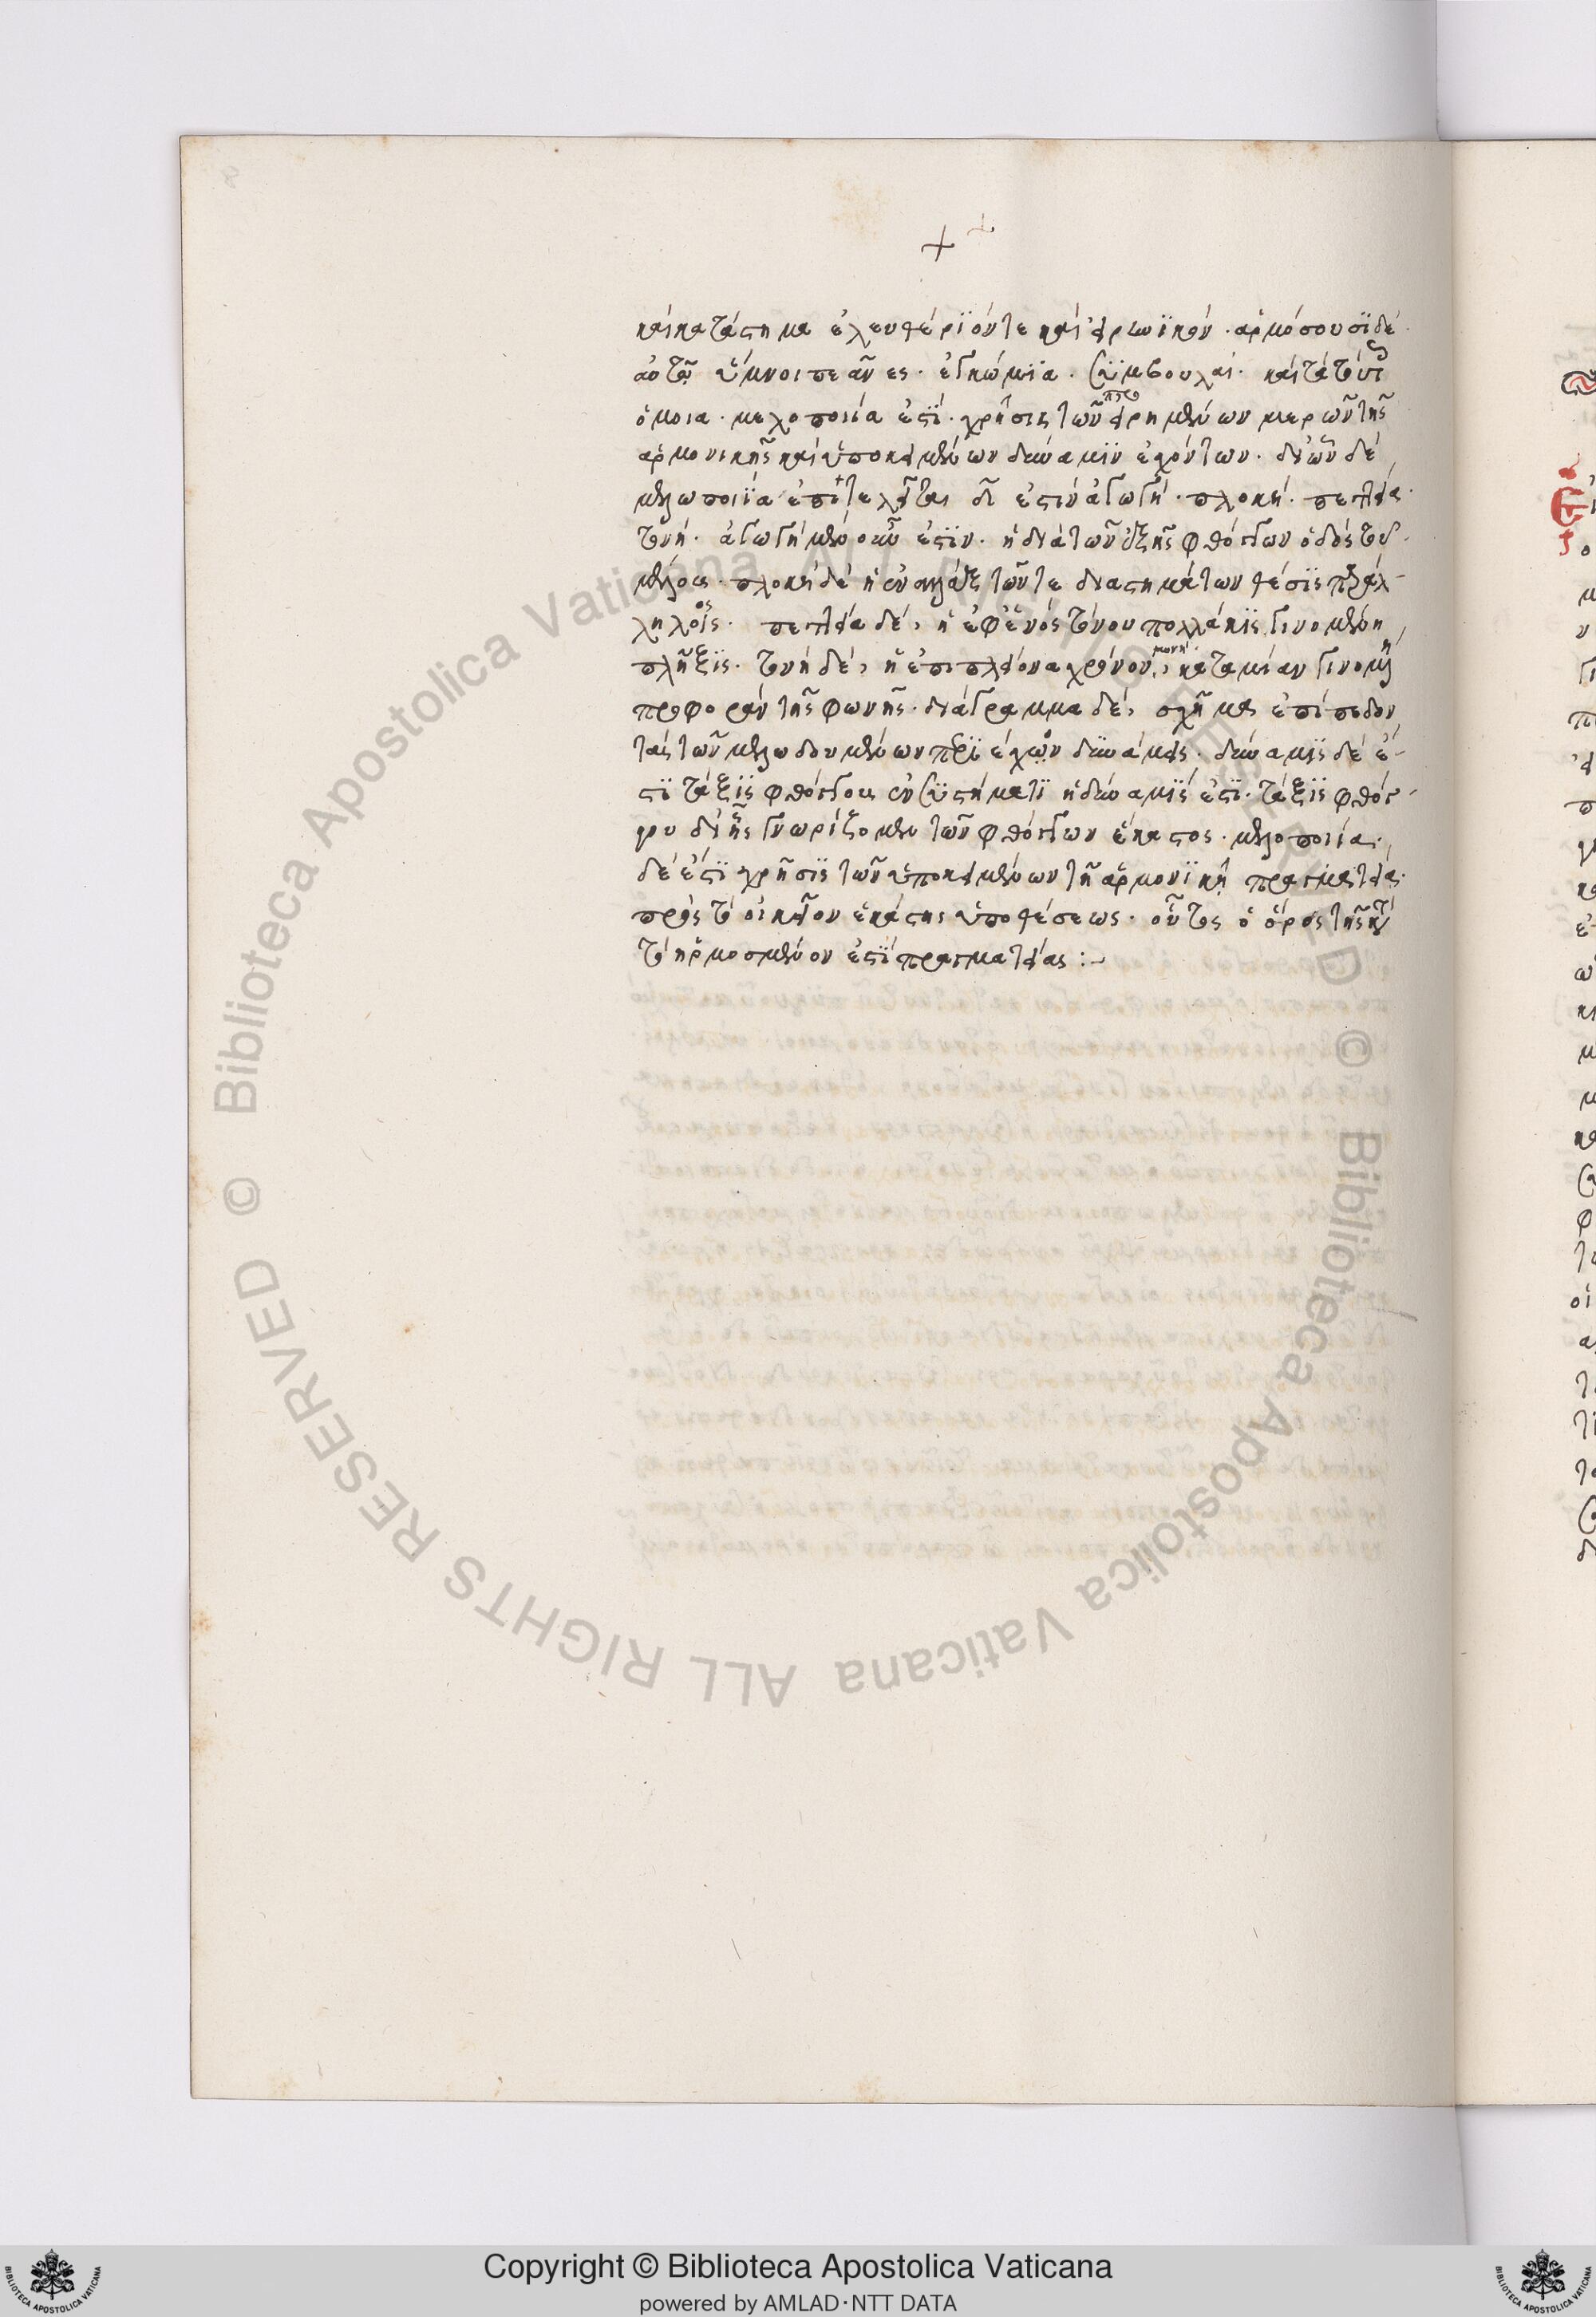 καὶ κατάστημα ἐλευθέριόν τε καὶ εἰρωϊκόν. ἁρμόσουσι δὲ
αὐτῷ ὕμνοι πεᾶνες. ἐγκώμια. συμβουλαί. καὶ τὰ τούτοις
ὅμοια. μελοποιία ἐστὶ. χρῆσις τῶν προειρημένων μερῶν τῆς
ἁρμονικῆς καὶ ὑποκειμένων δύναμιν ἐχόντων. δι' ὧν δὲ
μελωποιΐα ἐπιτελεῖται δ ἐστὶν ἀγωγή. πλοκή. πεττεία.
τονή. ἀγωγὴ μὲν οὖν ἐστιν. ἡ διὰ τῶν ἑξῆς φθόγγων ὁδὸς τοῦ
μέλους. πλοκὴ δὲ ἡ ἐναλλὰξ τῶν τε διαστημάτων θέσις παράλ-
ληλος. πεττεία δὲ, ἡ ἐφ' ἑνὸς τόνου πολλάκις γινομένη
πλῆξις. τονὴ δὲ, ἡ ἐπιπλείονα χρόνον μονὴ, κατα μίαν γινομένη
προφορὰν τῆς φωνῆς. διάγραμμα δὲ, σχῆμα ἐπίπεδον
τὰς τῶν μελωδουμένων περιέχον δυνάμεις. δύναμις δὲ ἐ-
στὶ τάξις φθόγγου ἐν συστήματι ἢ δύναμίς ἐστι. τάξις φθόγ-
γου δι' ἧς γνωρίζομεν τῶν φθόγγων ἕκαστος. μελοποιία.
δέ ἐστι χρῆσις τῶν ὑποκειμένων τῇ ἁρμονικῇ πραγματείᾳ.
πρὸς τὸ οἰκεῖον ἑκάστης ὑποθέσεως. οὗτος ὁ ὅρος τῆς κατὰ
τὸ ἡρμοσμένον ἐστὶ πραγματείας :~
Copyright © Biblioteca Apostolica Vaticana
powered by AMLAD·NTT DATA
© Biblioteca Apostolica Vaticana ALL RIGHTS RESERVED
© Biblioteca Apostolica Vaticana ALL RIGHTS RESERVED